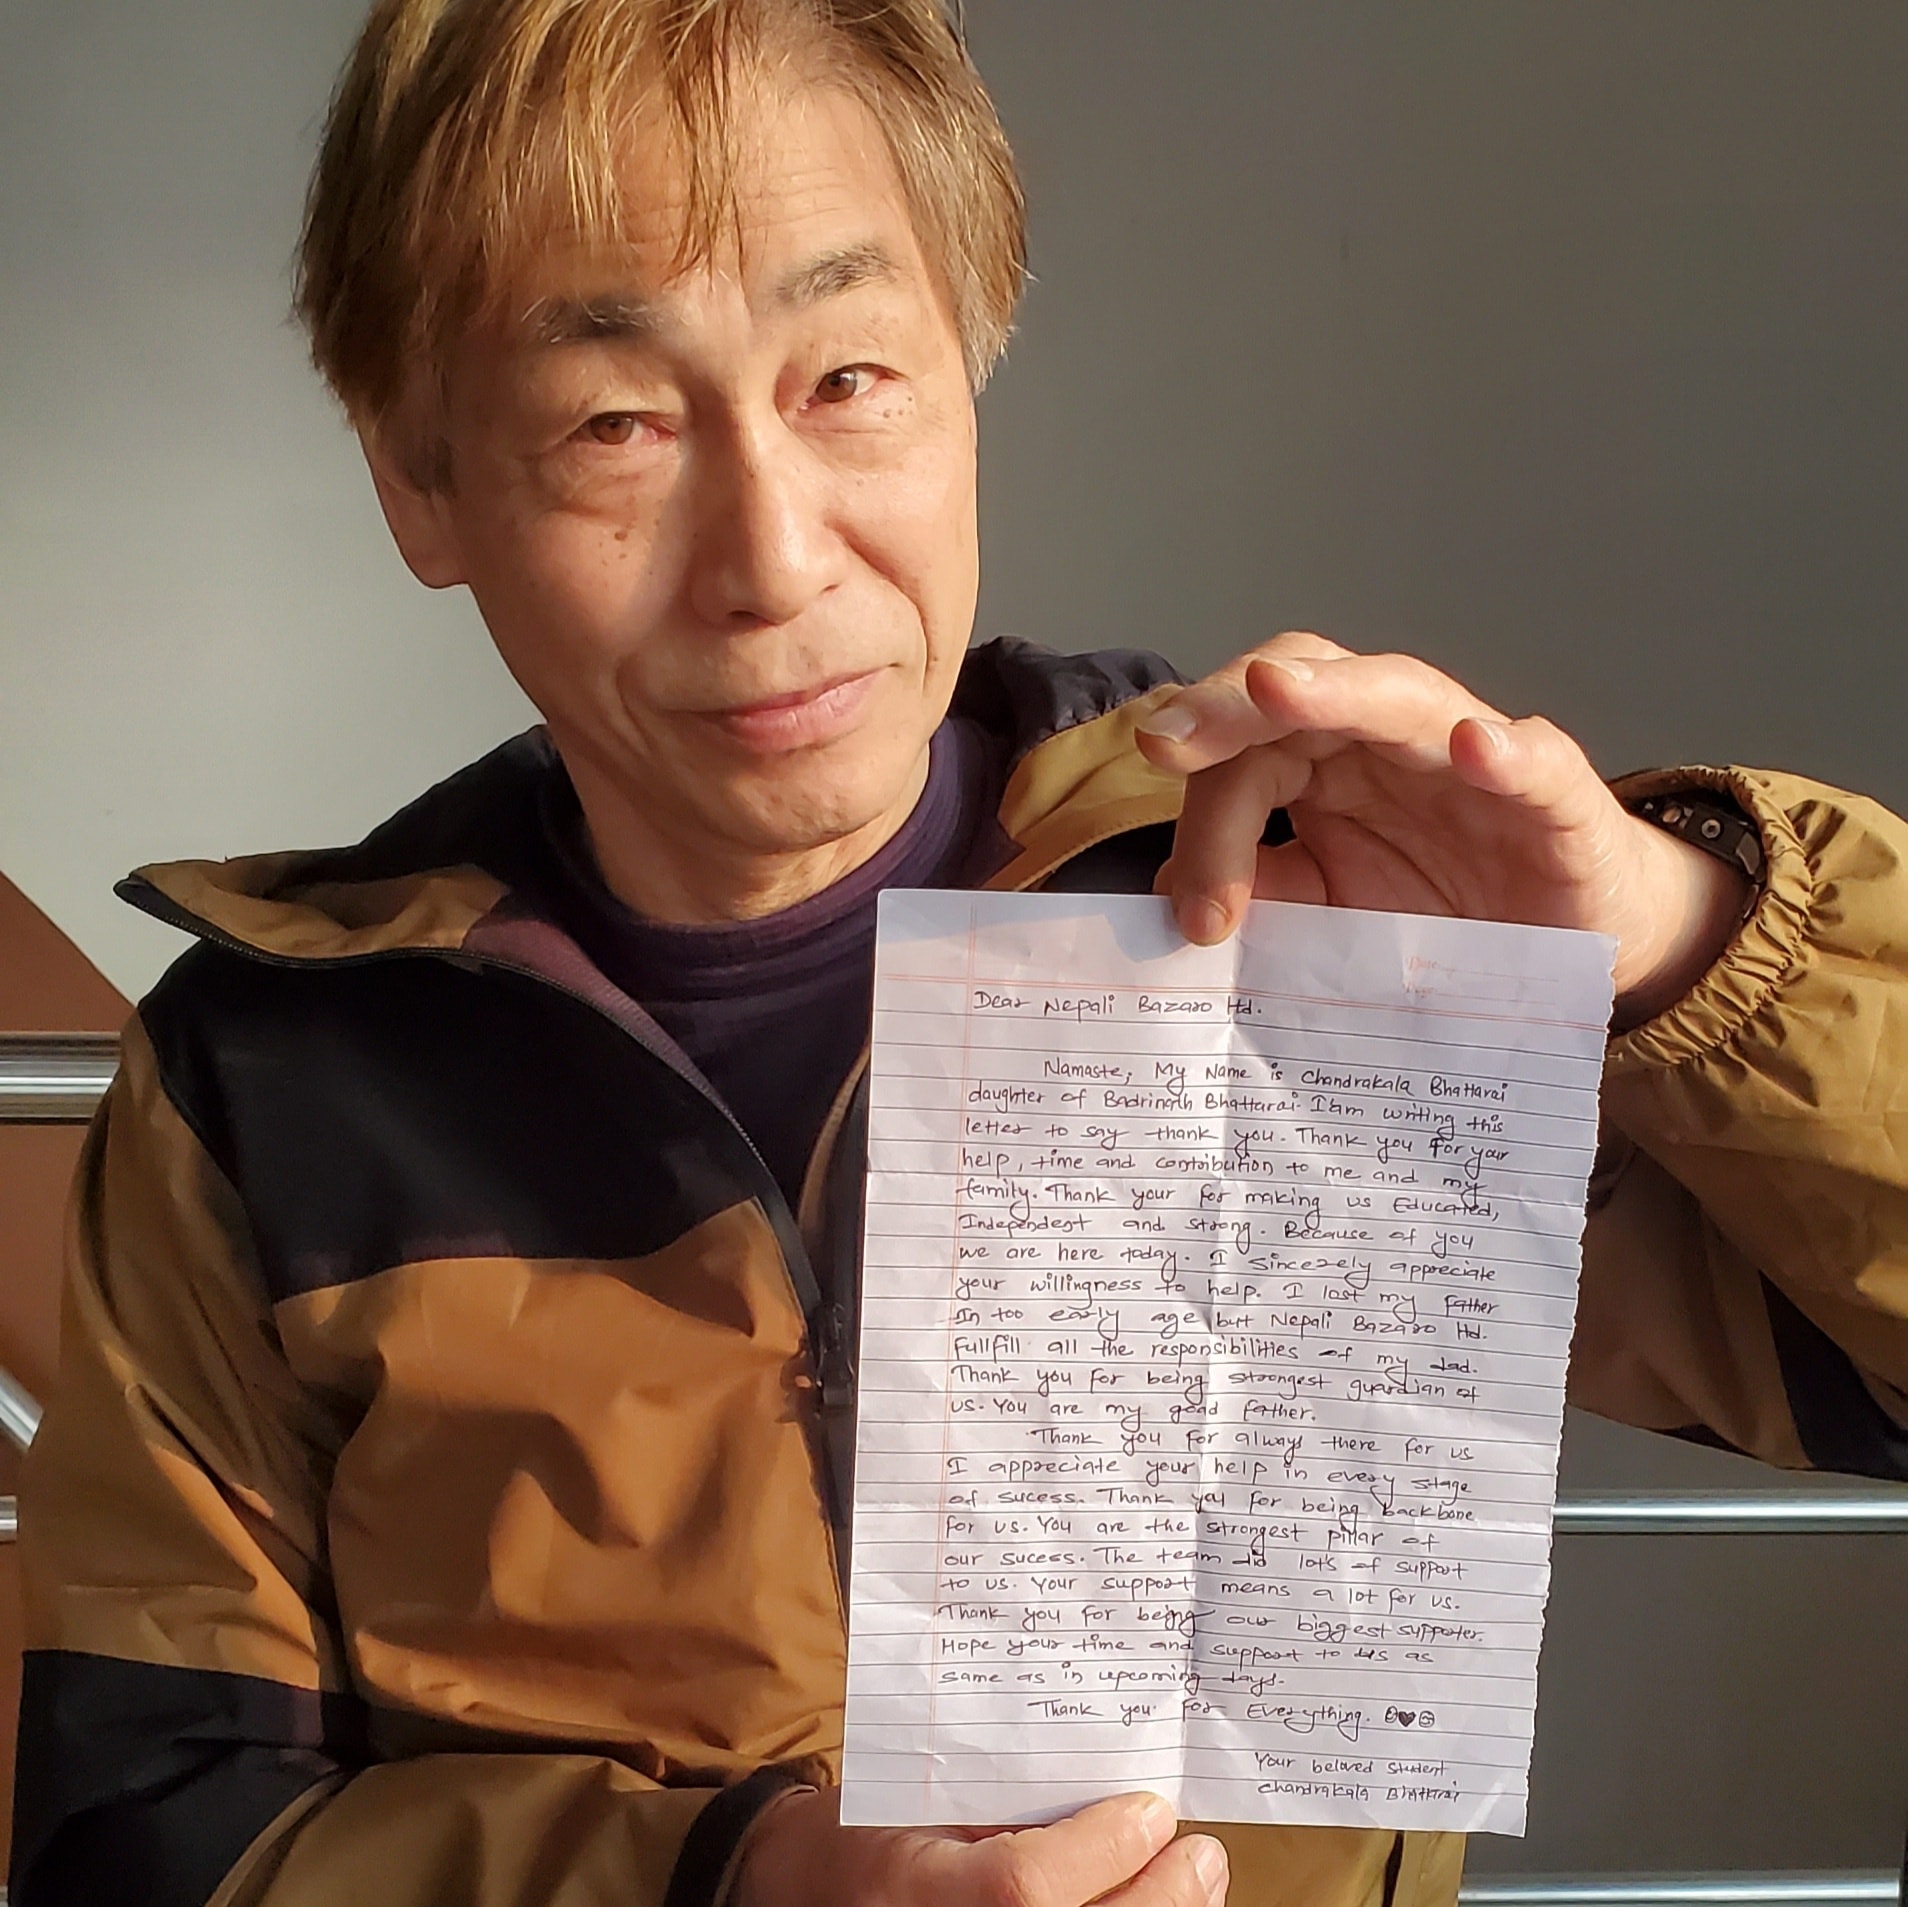 Date
Dear Nepali Bazaro ltd.
Namaste, My Name is Chandrakala Bhattarai
daughter of Badrinath Bhattarai. I'am writing this
letter to say thank you. Thank you for your
help, time and contribution to me and my
family. Thank your for making us Educated,
Independent and strong. Because of you
we are here today. I sincerely appreciate
your willingness to help. I lost my father
In too early age but Nepali Bazaro ltd.
fullfill all the responsibilities of my dad.
Thank you for being strongest guardian of
us. You are my goad father.
Thank you for always there for us
I appreciate your help in every stage
of sucess. Thank you for being backbone
for us. You are the strongest pillar of
our sucess. The team did lot's of support
to us. Your support means a lot for us.
Thank you for being our biggest supporter.
Hope your time and support to us as
same as in upcoming days.
Thank you for Everything.
Your beloved student
Chandrakala Bhattarai